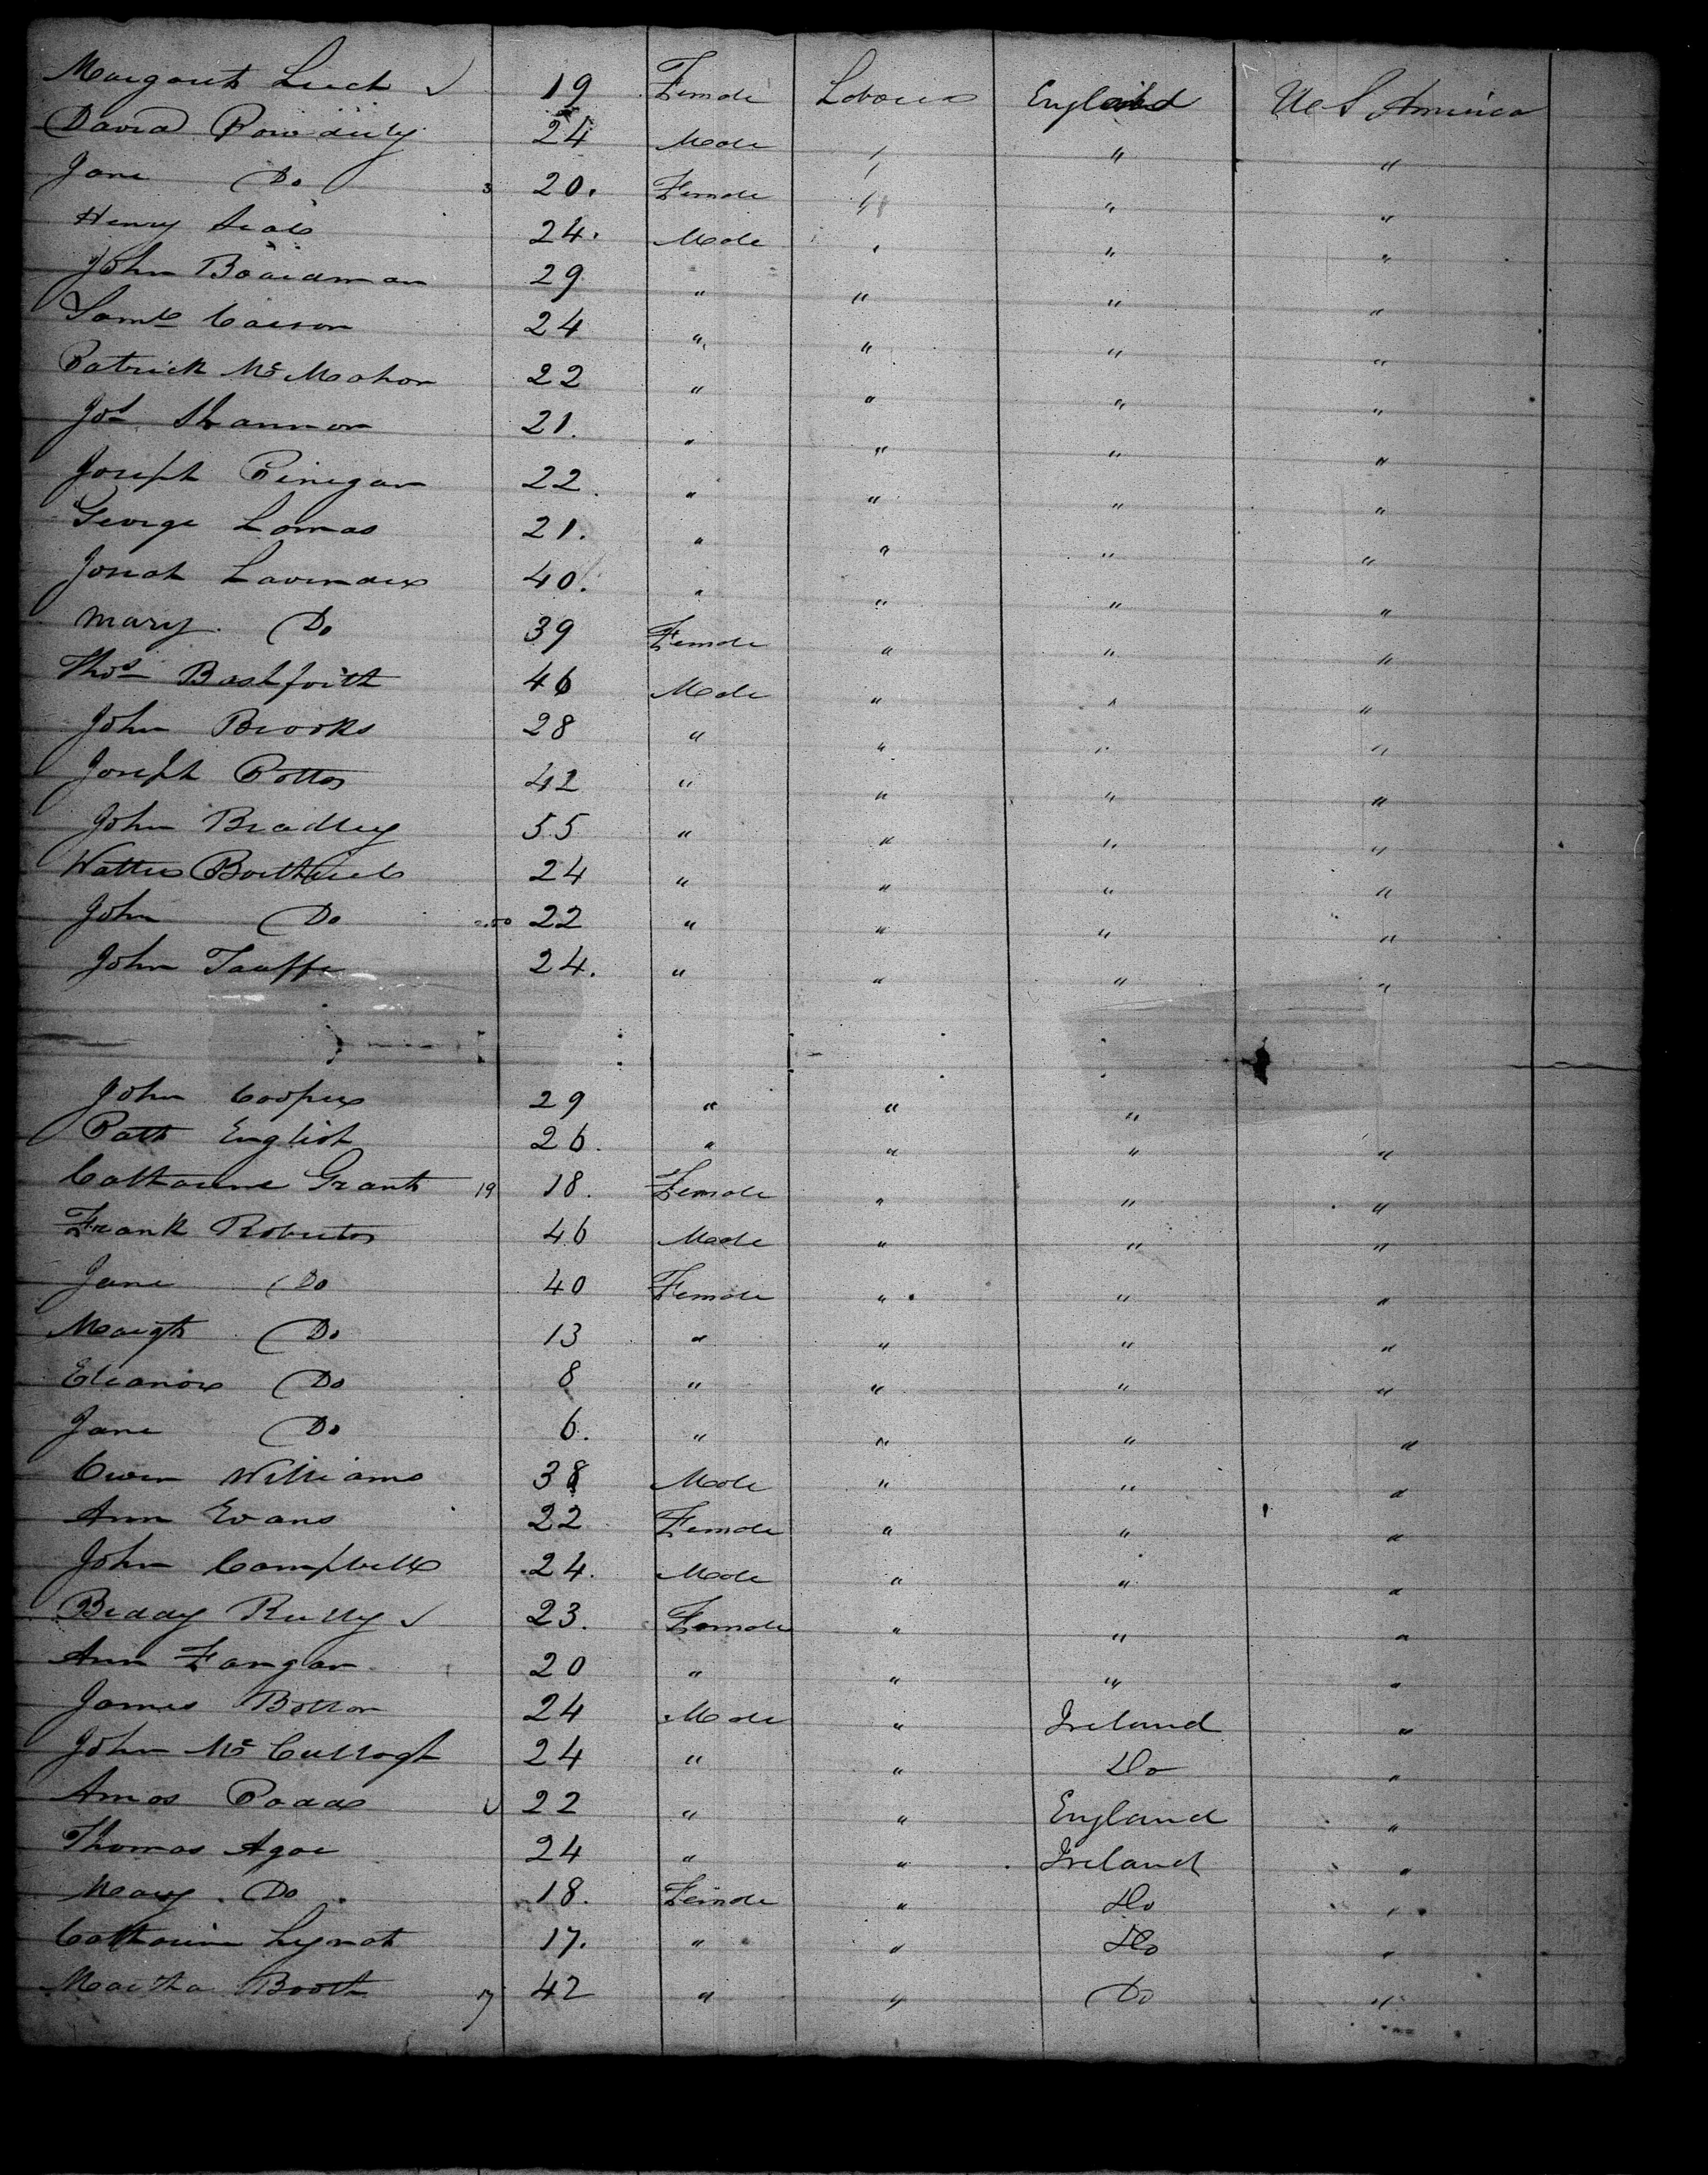 Margaret Leech ✓ 19 Female Labourer England U S America
David Powderly 24 Male " " "
Jane Do 3 20. Female " " "
Henry Seale 24. Male " " "
John Boardman 29 " " " "
Saml Carson 24 " " " "
Patrick McMahon 22 " " " "
Jos Shannon 21. " " " "
Joseph Finegan 22. " " " "
George Lomas 21. " " " "
Josiah Lavender 40. " " " "
Mary Do 39 Female " " "
Thos Bashforth 46 Male " " "
John Brooks 28 " " " "
Joseph Potts 42 " " " "
John Bradley 55 " " " "
Walter 24 " " " "
John Do 22 " " " "
John Taaffe 24. " " " "
John Cooper 29 " " "
Patk English 26. " " " "
Catharine Grant 19 18. Female " " "
Frank Roberts 46 Male " " "
Jane Do 40 Female " " "
Margt Do 13 " " " "
Eleanor Do 8 " " " "
Jane Do 6. " " " "
Owen Williams 38 Male " " "
Ann Evans 22 Female " " "
John Campbell 24. Male " " "
Biddy Reilly ✓ 23. Female " " "
Ann Fangan 20 " " " "
James Bolton 24 Male " Ireland "
John McCullogh 24 " " Do "
Amos 22 " " England "
Thomas Agar 24 " " Ireland "
Mary Do 18. Female " Do "
Catharine Lynah 17. " " Do "
Martha Booth 17 42 " " Do "